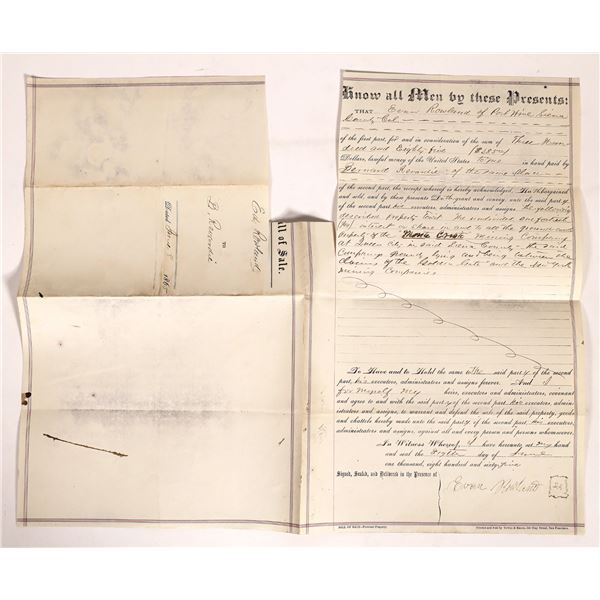 Know all Men by these Presents:
THAT Evan Rowland of Port Wine Sierra
County Cal.
of the first part, for and in consideration of the sum of Three Hun
dred and Eighty five ($385oo)
Dollars, lawful money of the United States to me in hand paid by
Bernard of the same place
of the second part, the receipt whereof is hereby acknowledged, Have bargained
and sold, and by these presents Do grant and convey, unto the said party
of the second part, his executors, administrators and assigns the following
described property viz: The undivided one
interest or share in and to all the ground and
property of the Monte Cristo Mining Company
at Queen City in said Sierra County, the said
Company ground lying and being between the
claims of the Golden Gate and the New York
Mining Companies
To Have and to Hold the same to the said party of the second
part, his executors, administrators and assigns forever. And I
for myself my heirs, executors and administrators, covenant
and agree to and with the said party of the second part his executors, admin-
istrators and assigns, to warrant and defend the sale of the said property, goods
and chattels hereby made unto the said party of the second part his executors,
administrators and assigns, against all and every person and persons whomsoever.
In Witness Whereof, I have hereunto set my hand
and seal the Eighth day of June
one thousand, eight hundred and sixty five
Signed, Sealed, and Delivered in the Presence of
Evan Rowland
BILL OF SALE.—Personal Property.
Bill of Sale.
Evan Rowland
TO
B.
Dated June 8 1865